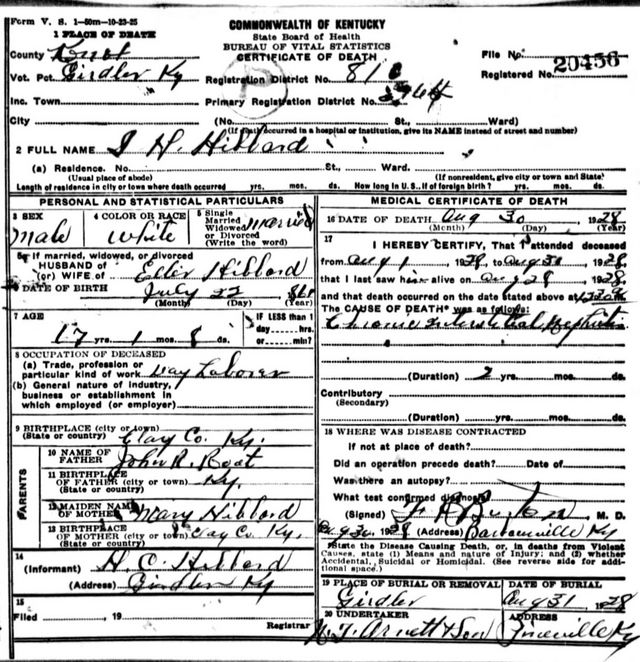 Form V. S. 1—50m—10-23-25
1 PLACE OF DEATH
COMMONWEALTH OF KENTUCKY
State Board of Health
BUREAU OF VITAL STATISTICS
CERTIFICATE OF DEATH
County Knox
Vot. Pct. Girdler Ky
Inc. Town
City
Registration District No. 81
Primary Registration District No.
File No. 20456
Registered No.
(No. St., Ward)
(If death occurred in a hospital or institution, give its NAME instead of street and number)
2 FULL NAME I H. Hibbard
(a) Residence. No. St., Ward.
(Usual place of abode) (If nonresident, give city or town and State)
Length of residence in city or town where death occurred yrs. mos. ds. How long in U. S., if of foreign birth? yrs. mos. ds.
PERSONAL AND STATISTICAL PARTICULARS
3 SEX
Male
4 COLOR OR RACE
White
5 Single
Married
Widowed
or Divorced
(Write the word)
Married
5a If married, widowed, or divorced
HUSBAND of
(or) WIFE of Hibbard
6 DATE OF BIRTH July 22
(Month) (Day) (Year)
7 AGE
yrs. 1 mos. 8 ds.
IF LESS than 1
day hrs.
or min.?
8 OCCUPATION OF DECEASED
(a) Trade, profession or
particular kind of work Day Laborer
(b) General nature of industry,
business or establishment in
which employed (or employer)
9 BIRTHPLACE (city or town)
(State or country) Clay Co. Ky.
PARENTS
10 NAME OF
FATHER John R. Root
11 BIRTHPLACE
OF FATHER (city or town) Ky.
(State or country)
12 MAIDEN NAME
OF MOTHER Mary Hibbard
13 BIRTHPLACE
OF MOTHER (city or town) Clay Co. Ky.
(State or country)
14
(Informant) H. C. Hibbard
(Address) Girdler Ky
15
Filed , 19
Registrar
MEDICAL CERTIFICATE OF DEATH
16 DATE OF DEATH Aug 30 1928
(Month) (Day) (Year)
17
I HEREBY CERTIFY, That I attended deceased
from Aug 1 1928 to Aug 30 1928
that I last saw him alive on Aug 28 1928
and that death occurred on the date stated above at
The CAUSE OF DEATH* was as follows:
Chronic Interstitial Nephritis
(Duration) 2 yrs. mos. ds.
Contributory
(Secondary)
(Duration) yrs. mos. ds.
18 WHERE WAS DISEASE CONTRACTED
If not at place of death?
Did an operation precede death? Date of
Was there an autopsy?
What test confirmed diagnosis?
(Signed) Burton M. D.
Aug 30 1928 (Address) Barbourville Ky
*State the Disease Causing Death, or, in deaths from Violent
Causes, state (1) Means and nature of Injury; and (2) whether
Accidental, Suicidal or Homicidal. (See reverse side for addi-
tional space.)
19 PLACE OF BURIAL OR REMOVAL
Girdler
DATE OF BURIAL
Aug 31 1928
20 UNDERTAKER
Arnett & Son
ADDRESS
Pineville Ky